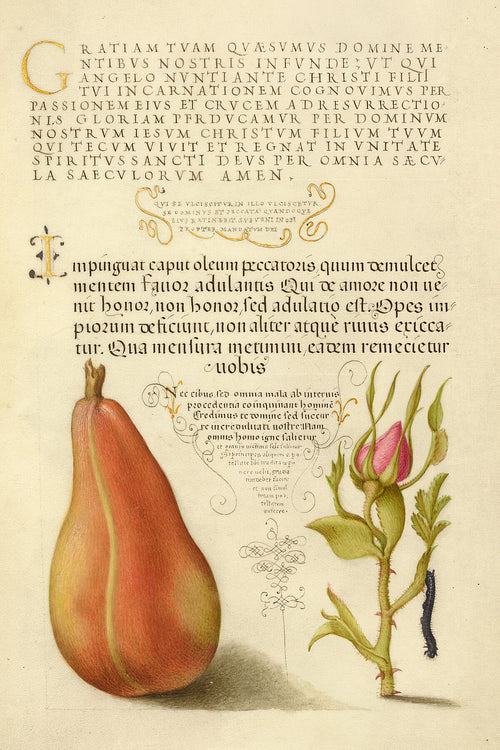 GRATIAM TVAM QVÆSVMVS DOMINE ME-
NTIBVS NOSTRIS INFVNDE, VT QVI
ANGELO NVNTIANTE CHRISTI FILII
TVI INCARNATIONEM COGNOVIMVS PER
PASSIONEM EIVS ET CRVCEM AD RESVRRECTIO-
NIS GLORIAM PERDVCAMVR PER DOMINVM
NOSTRVM IESVM CHRISTVM FILIVM TVVM
QVI TECVM VIVIT ET REGNAT IN VNITATE
SPIRITVS SANCTI DEVS PER OMNIA SÆCV-
LA SAECVLORVM AMEN.
QVI SE VLCISCITVR IN ILLO VLCISCETVR
SE DOMINVS ET PECCATA QVANDOQVE
EIVS RATINERIT
PROPTER MANDATVM DEI
Impinguat caput oleum peccatoris, quum demulcet
mentem fauor adulantis Qui de amore non ue-
nit honor, non honor, sed adulatio est. Opes im-
piorum deficiunt, non aliter atque riuus exicca-
tur. Qua mensura metimini, eadem remecietur
uobis
Nec cibus, sed omnia mala ab internis
procedentia coinquinant hominē
Credimus te domine sed succur
re incredulitati nostre Nam
omnis homo igne salietur
et omnis uictima sale salietur